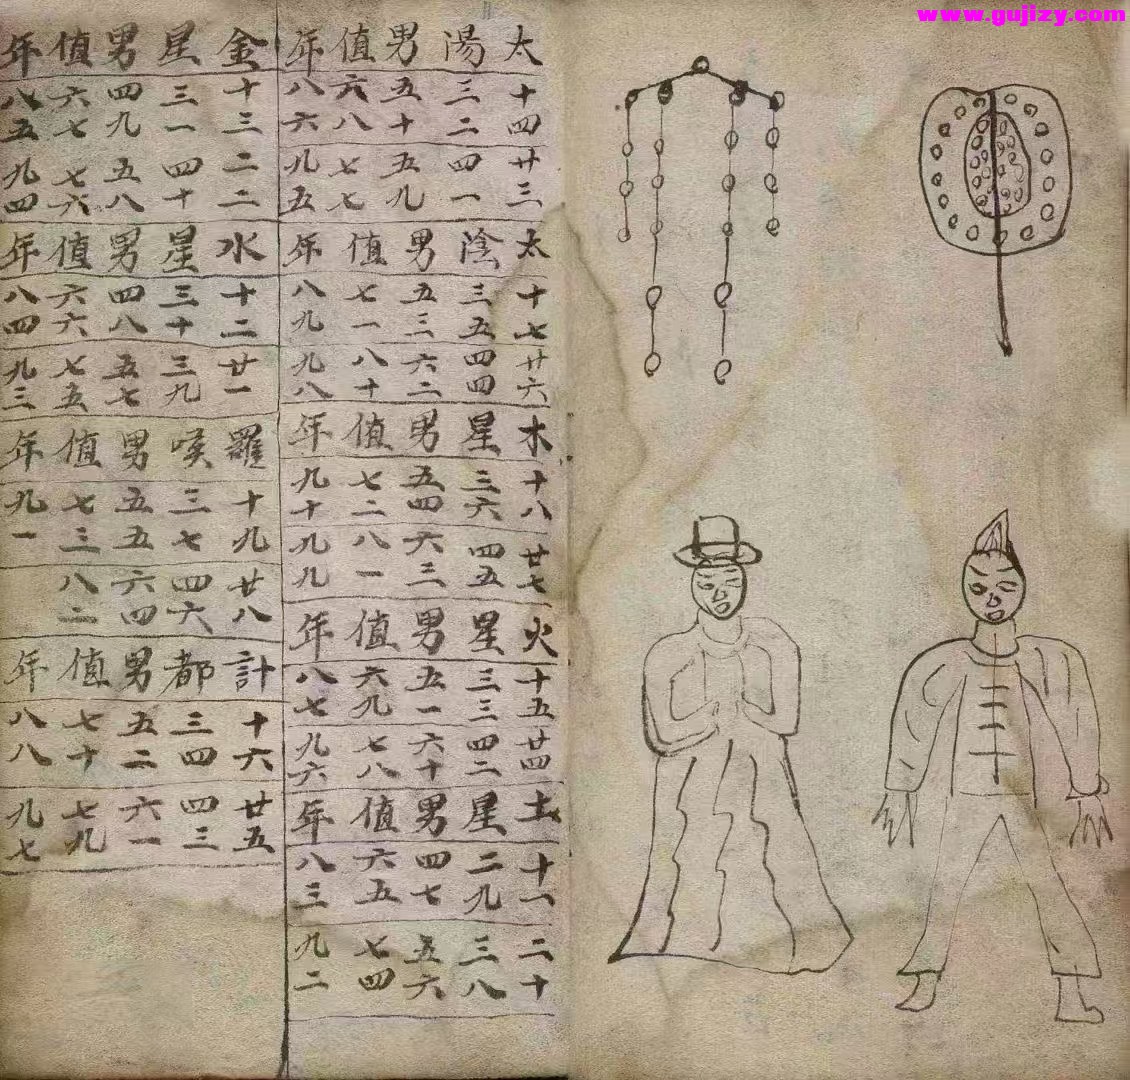 www.gujizy.com
太陽男值年
十四 三二 五十 六八 八六
廿三 四一 五九 七七 九五
太陰男值年
十七 三五 五三 七一 八九
廿六 四四 六二 八十 九八
木星男值年
十八 三六 五四 七二 九十
廿七 四五 六三 八一 九九
火星男值年
十五 三三 五一 六九 八七
廿四 四二 六十 七八 九六
土星男值年
十一 二九 四七 六五 八三
二十 三八 五六 七四 九二
金星男值年
十三 三一 四九 六七 八五
二二 四十 五八 七六 九四
水星男值年
十二 三十 四八 六六 八四
廿一 三九 五七 七五 九三
羅喉男值年
十九 三七 五五 七三 九一
廿八 四六 六四 八二
計都男值年
十六 三四 五二 七十 八八
廿五 四三 六一 七九 九七